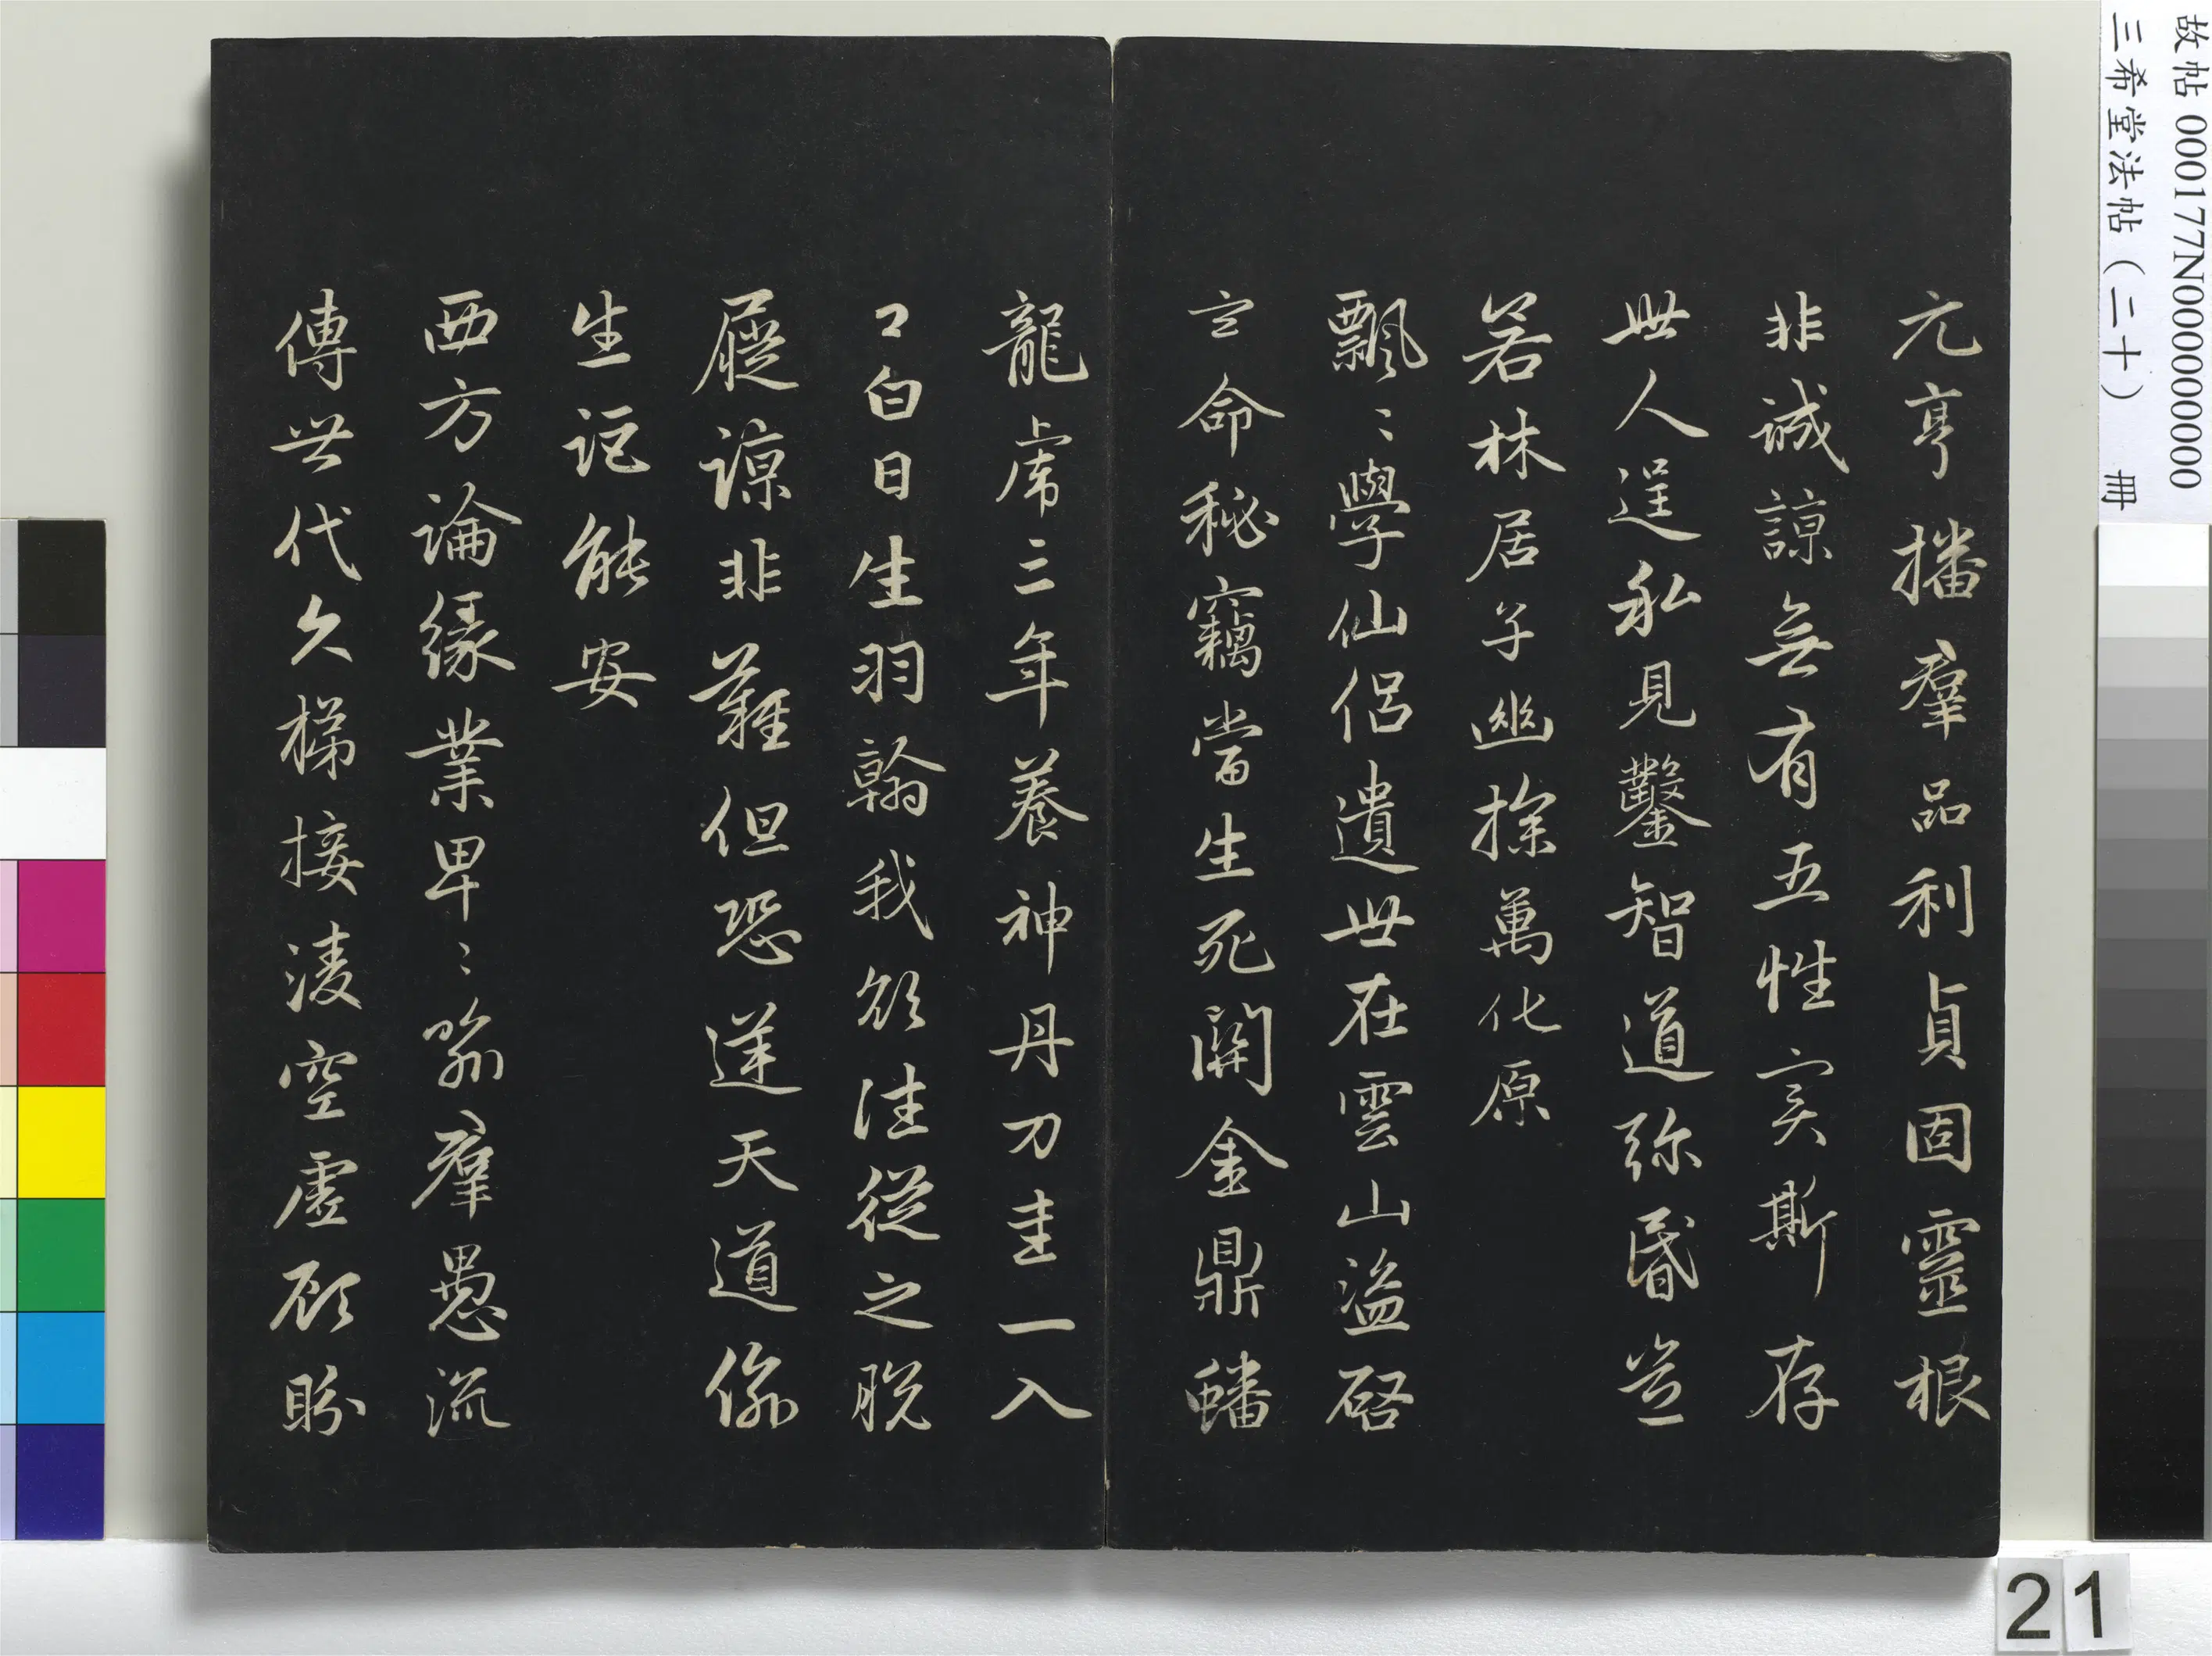 元亨播羣品利貞固靈根
非誠諒無有五性實斯存
世人逞私見鑿智道弥昏豈
若林居子幽探萬化原
飄〻學仙侶遺世在雲山盜啓
元命秘竊當生死關金鼎蟠
龍虎三年養神丹刀圭一入
口白日生羽翰我欲往從之脫
屣諒非難但恐逆天道偷
生詎能安
西方論緣業卑〻喻羣愚流
傳世代久梯接淩空虛顧盼
故帖 000177N000000000
三希堂法帖（二十） 冊
21